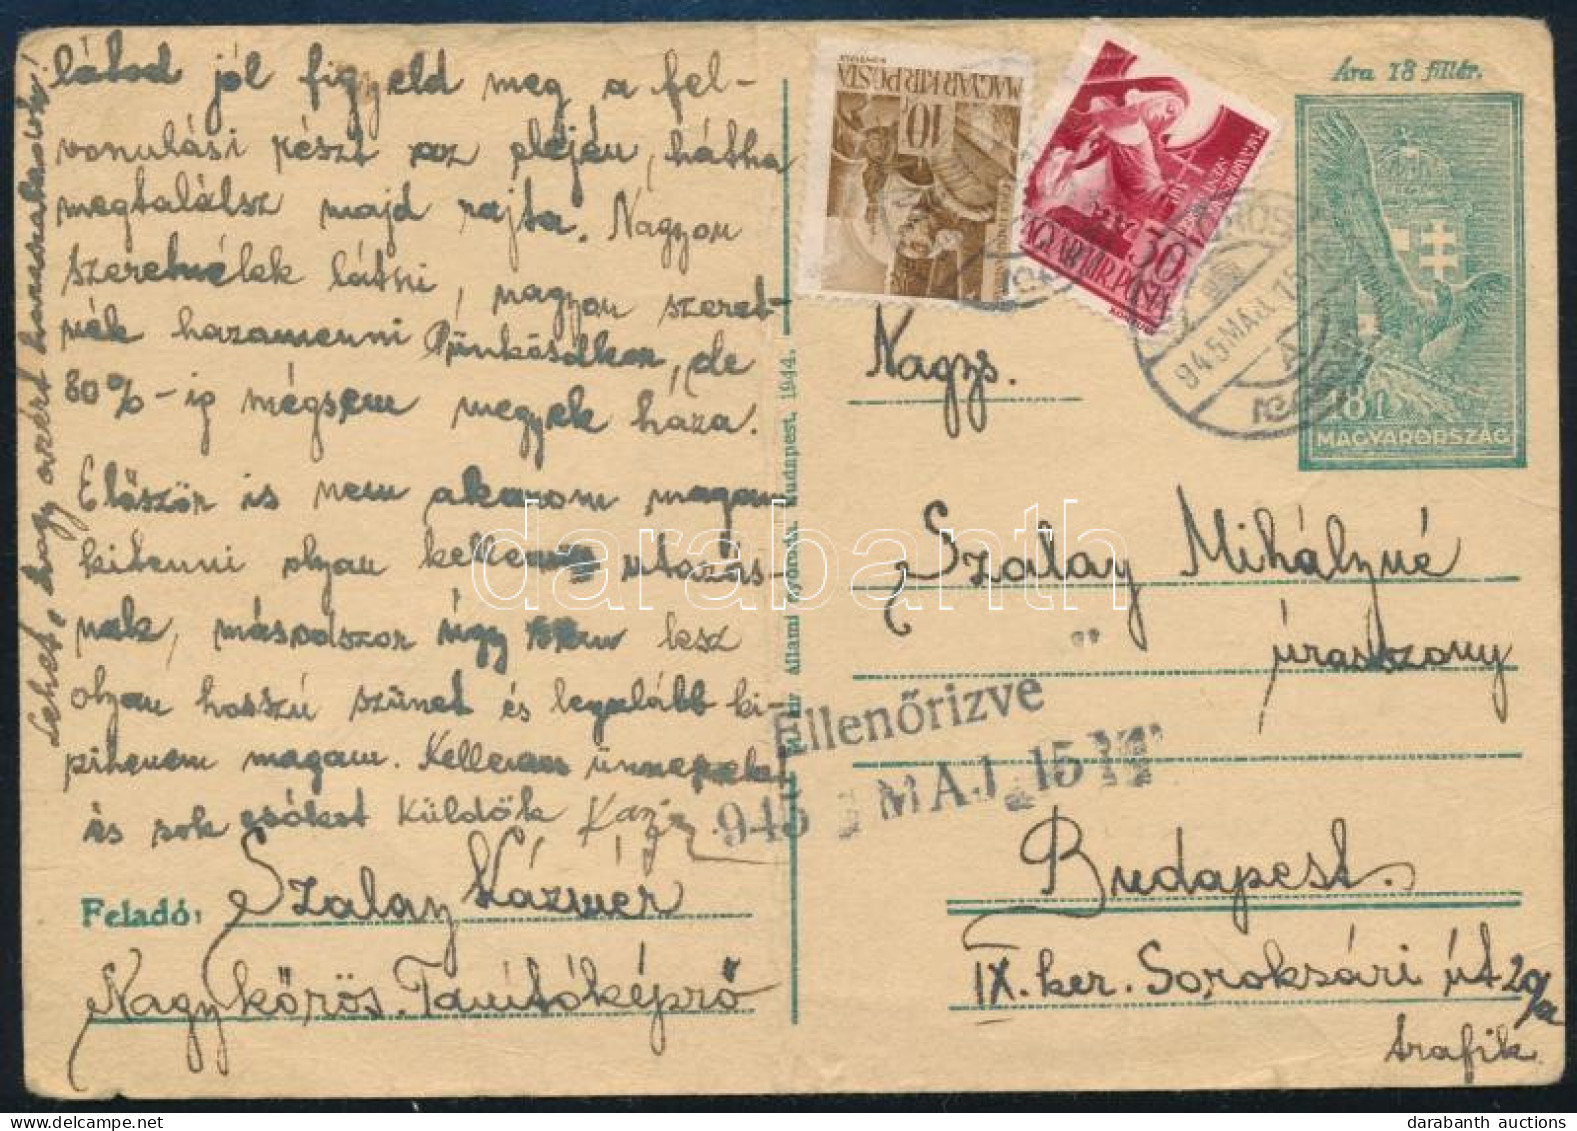 látod jól figyeld meg a fel-
vonulási részt az elején, hátha
megtalálsz majd rajta. Nagyon
szeretnélek látni, nagyon szeret-
nék hazamenni Pünkösdkor, de
80%-ig mégsem megyek haza.
Először is nem akarom magam
kitenni olyan kellem utazás-
nak, másodszor úgy sem lesz
olyan hosszú szünet és legalább ki-
pihenem magam. Kellemes ünnepeket
és sok csókot küldök Kázmér
Lehet, hogy azért hazaszaladok!
Feladó: Szalay Kázmér
Nagykőrös. Tanítóképző
Magyar állami nyomda, Budapest, 1944.
MAGYAR KIR POSTA
10f
30f
MAGYAR KIR. POSTA
Ára 18 fillér.
18 f
MAGYARORSZÁG
945 MÁJ. 15
Nagys.
Szalay Mihályné
úrasszony
Ellenőrizve
945 MAJ 15
Budapest.
IX. ker. Soroksári út 20/a
trafik
darabanth
darabanth auctions